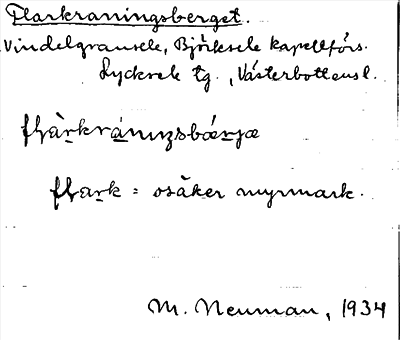 Flarkraningsberget.
Vindelgransele, Björksele kapellförs.
Lycksele tg., Västerbottensl.
flàrkránıŋsbæ̀rjæ
flark = osäker myrmark.
M. Neuman, 1934